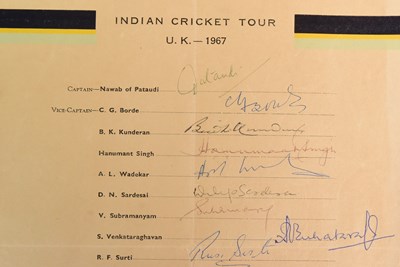 INDIAN CRICKET TOUR
U. K. — 1967
CAPTAIN— NAWAB OF PATAUDI Pataudi
VICE-CAPTAIN— C. G. BORDE
B. K. KUNDERAN
HANUMANT SINGH Hanumant Singh
A. L. WADEKAR
D. N. SARDESAI Dilip Sardesai
V. SUBRAMANYAM
S. VENKATARAGHAVAN
R. F. SURTI Rusi Surti